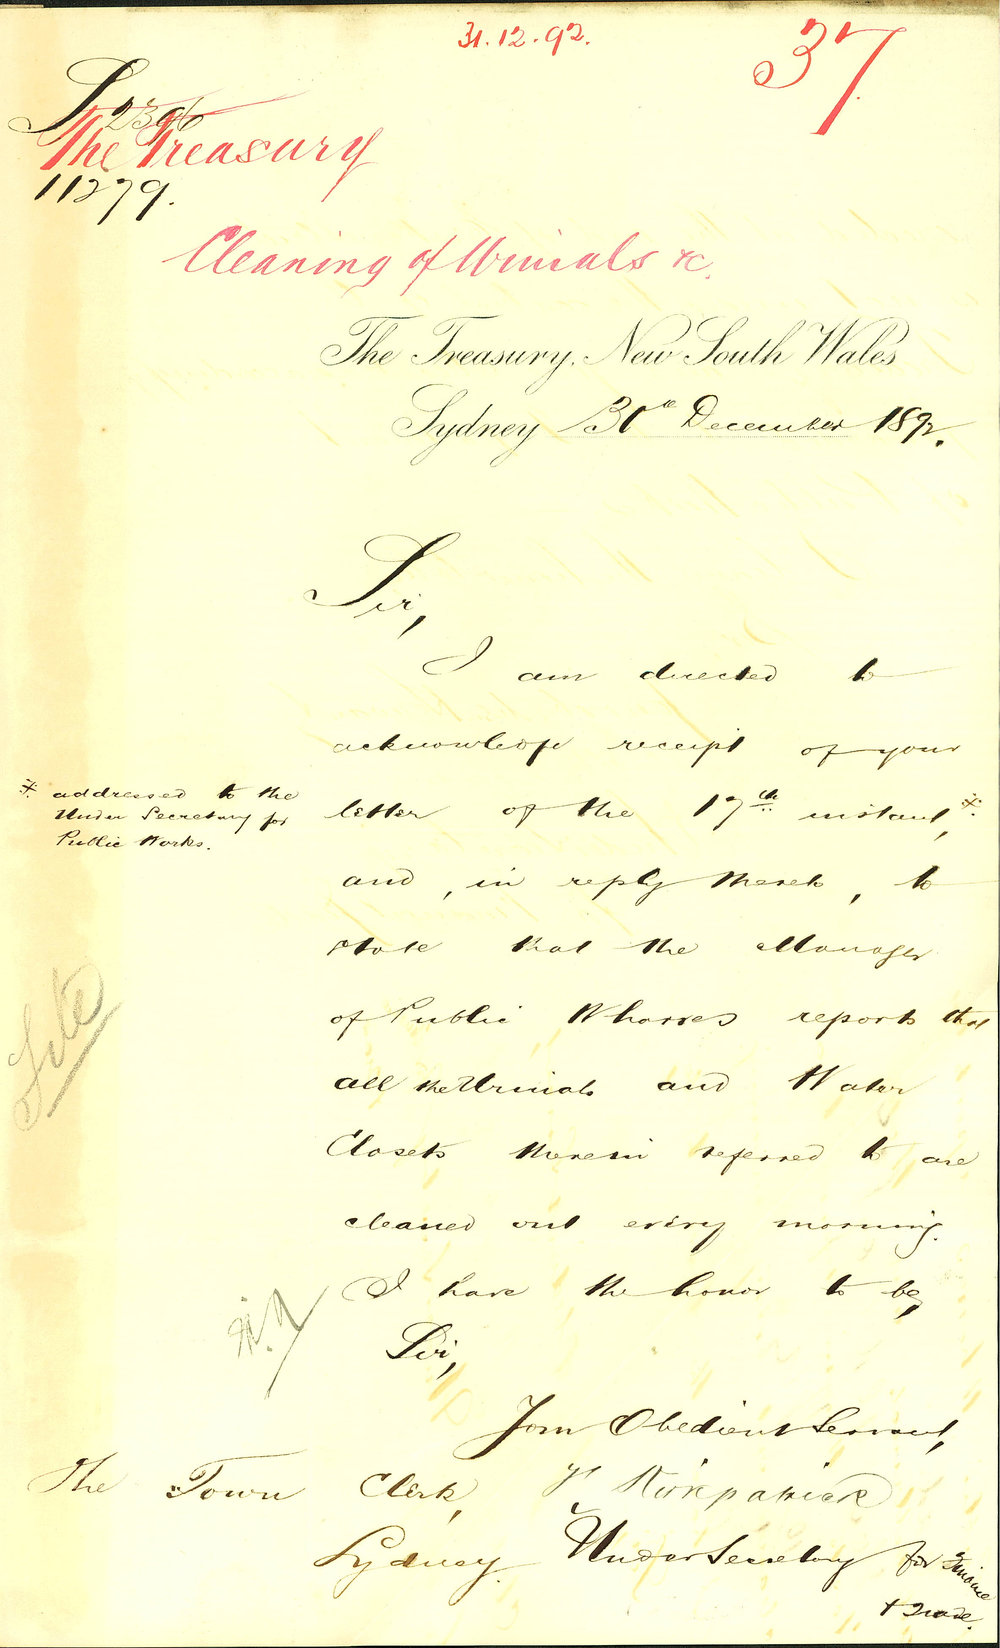 31.12.92.
37
2396
The Treasury
11279.
Cleaning of Urinals &c.
The Treasury, New South Wales
Sydney 30th December 1892.
Sir,
I am directed to
acknowledge receipt of your
letter of the 17th instant, *
* addressed to the
Under Secretary for
Public Works.
and, in reply thereto, to
state that the Manager
of Public Wharves reports that
all the Urinals and Water
Closets therein referred to are
cleaned out every morning.
I have the honor to be,
Sir,
Your Obedient Servant,
Kirkpatrick
Under Secretary for Finance
& Trade.
The Town Clerk,
Sydney.